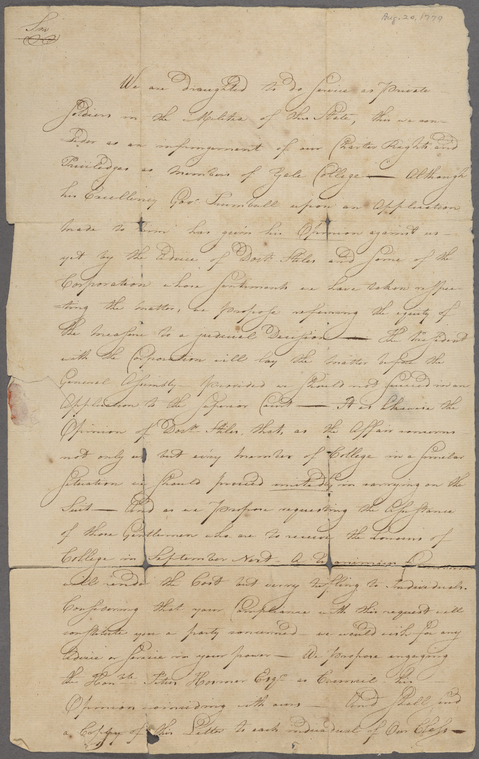 Aug. 20, 1779
Sir
We are draughted to do service as Private
Soldiers in the Militia of this State, this we con-
sider as an infringement of our Charter Rights and
Priviledges as members of Yale College — Although
his Excellency Gov.r Trumbull upon an Application
made to him has given his Opinion against us —
yet by the Advice of Doct.r Stiles and some of the
Corporation whose sentiments we have taken respec-
ting the matter, we propose referring the equity of
the measure to a judicial Decision — the President
with the Corporation will lay the matter before the
General Assembly provided we should not succeed in an
Application to the Superior Court — It is likewise the
Opinion of Doct.r Stiles, that, as the Affair concerns
not only us but every member of College in a similar
situation we should proceed unitedly in carrying on the
Suit — And as we propose requesting the Assistance
of those Gentlemen who are to receive the honors of
College in September Next — A Unanimous
will render the Cost but very trifling to Individuals.
Considering that your Compliance with this request will
constitute you a party concerned — we would wish for any
Advice or Service in your power — We propose engaging
the Hon.ble Titus Hosmer Esq.r as Council — his
Opinion coinciding with ours — And shall send
a Copy of this Letter to each individual of Our Class —